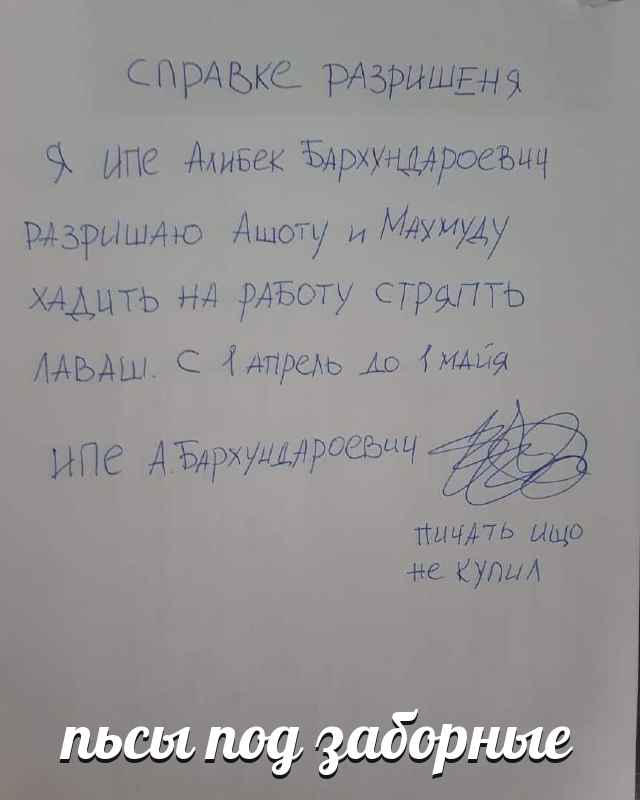 СПРАВКЕ РАЗРИШЕНЯ
Я ИПЕ АЛИБЕК БАРХУНДАРОЕВИЧ
РАЗРИШАЮ АШОТУ И МАХМУДУ
ХАДИТЬ НА РАБОТУ СТРЯПТЬ
ЛАВАШ. С 1 АПРЕЛЬ ДО 1 МАЙЯ
ИПЕ А.БАРХУНДАРОЕВИЧ
ПИЧАТЬ ИЩО
НЕ КУПИЛ
пьсы под заборные